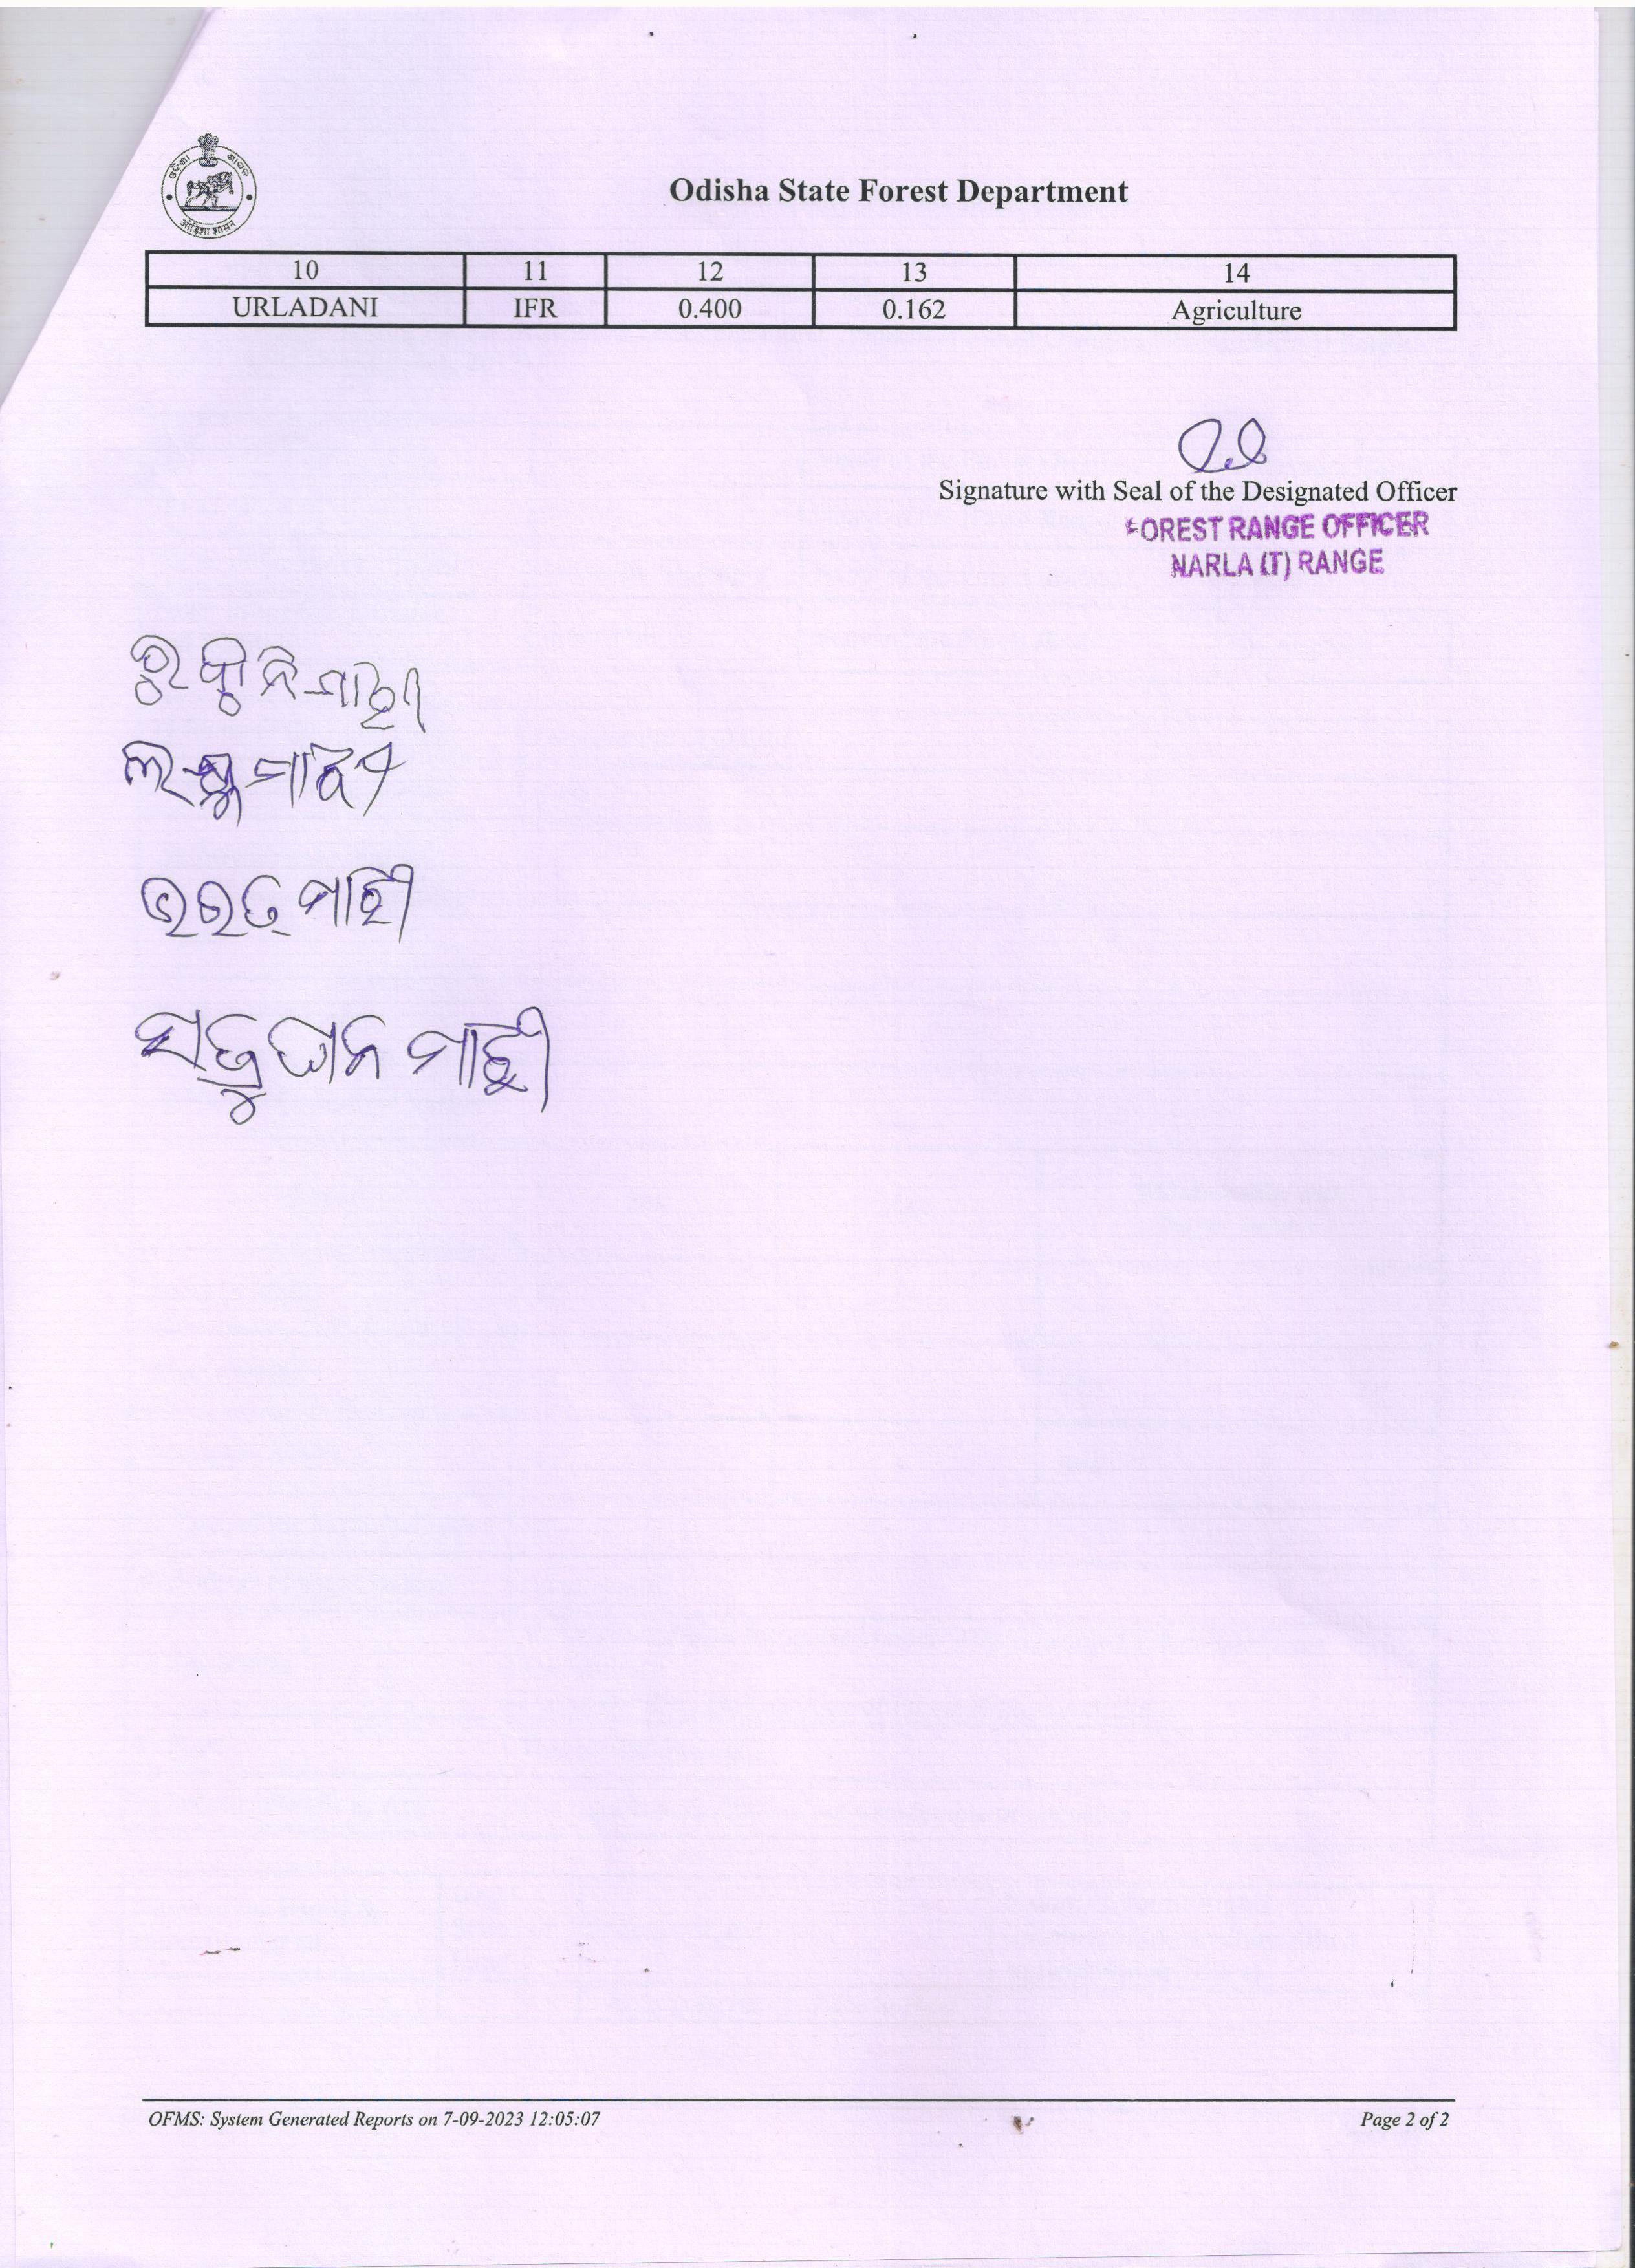 ଓଡ଼ିଶା ଶାସନ
ओड़िशा शासन
Odisha State Forest Department
10 11 12 13 14
URLADANI IFR 0.400 0.162 Agriculture
Signature with Seal of the Designated Officer
FOREST RANGE OFFICER
NARLA (T) RANGE
ଭରତ ମାଝୀ
ମାଝୀ
OFMS: System Generated Reports on 7-09-2023 12:05:07 Page 2 of 2